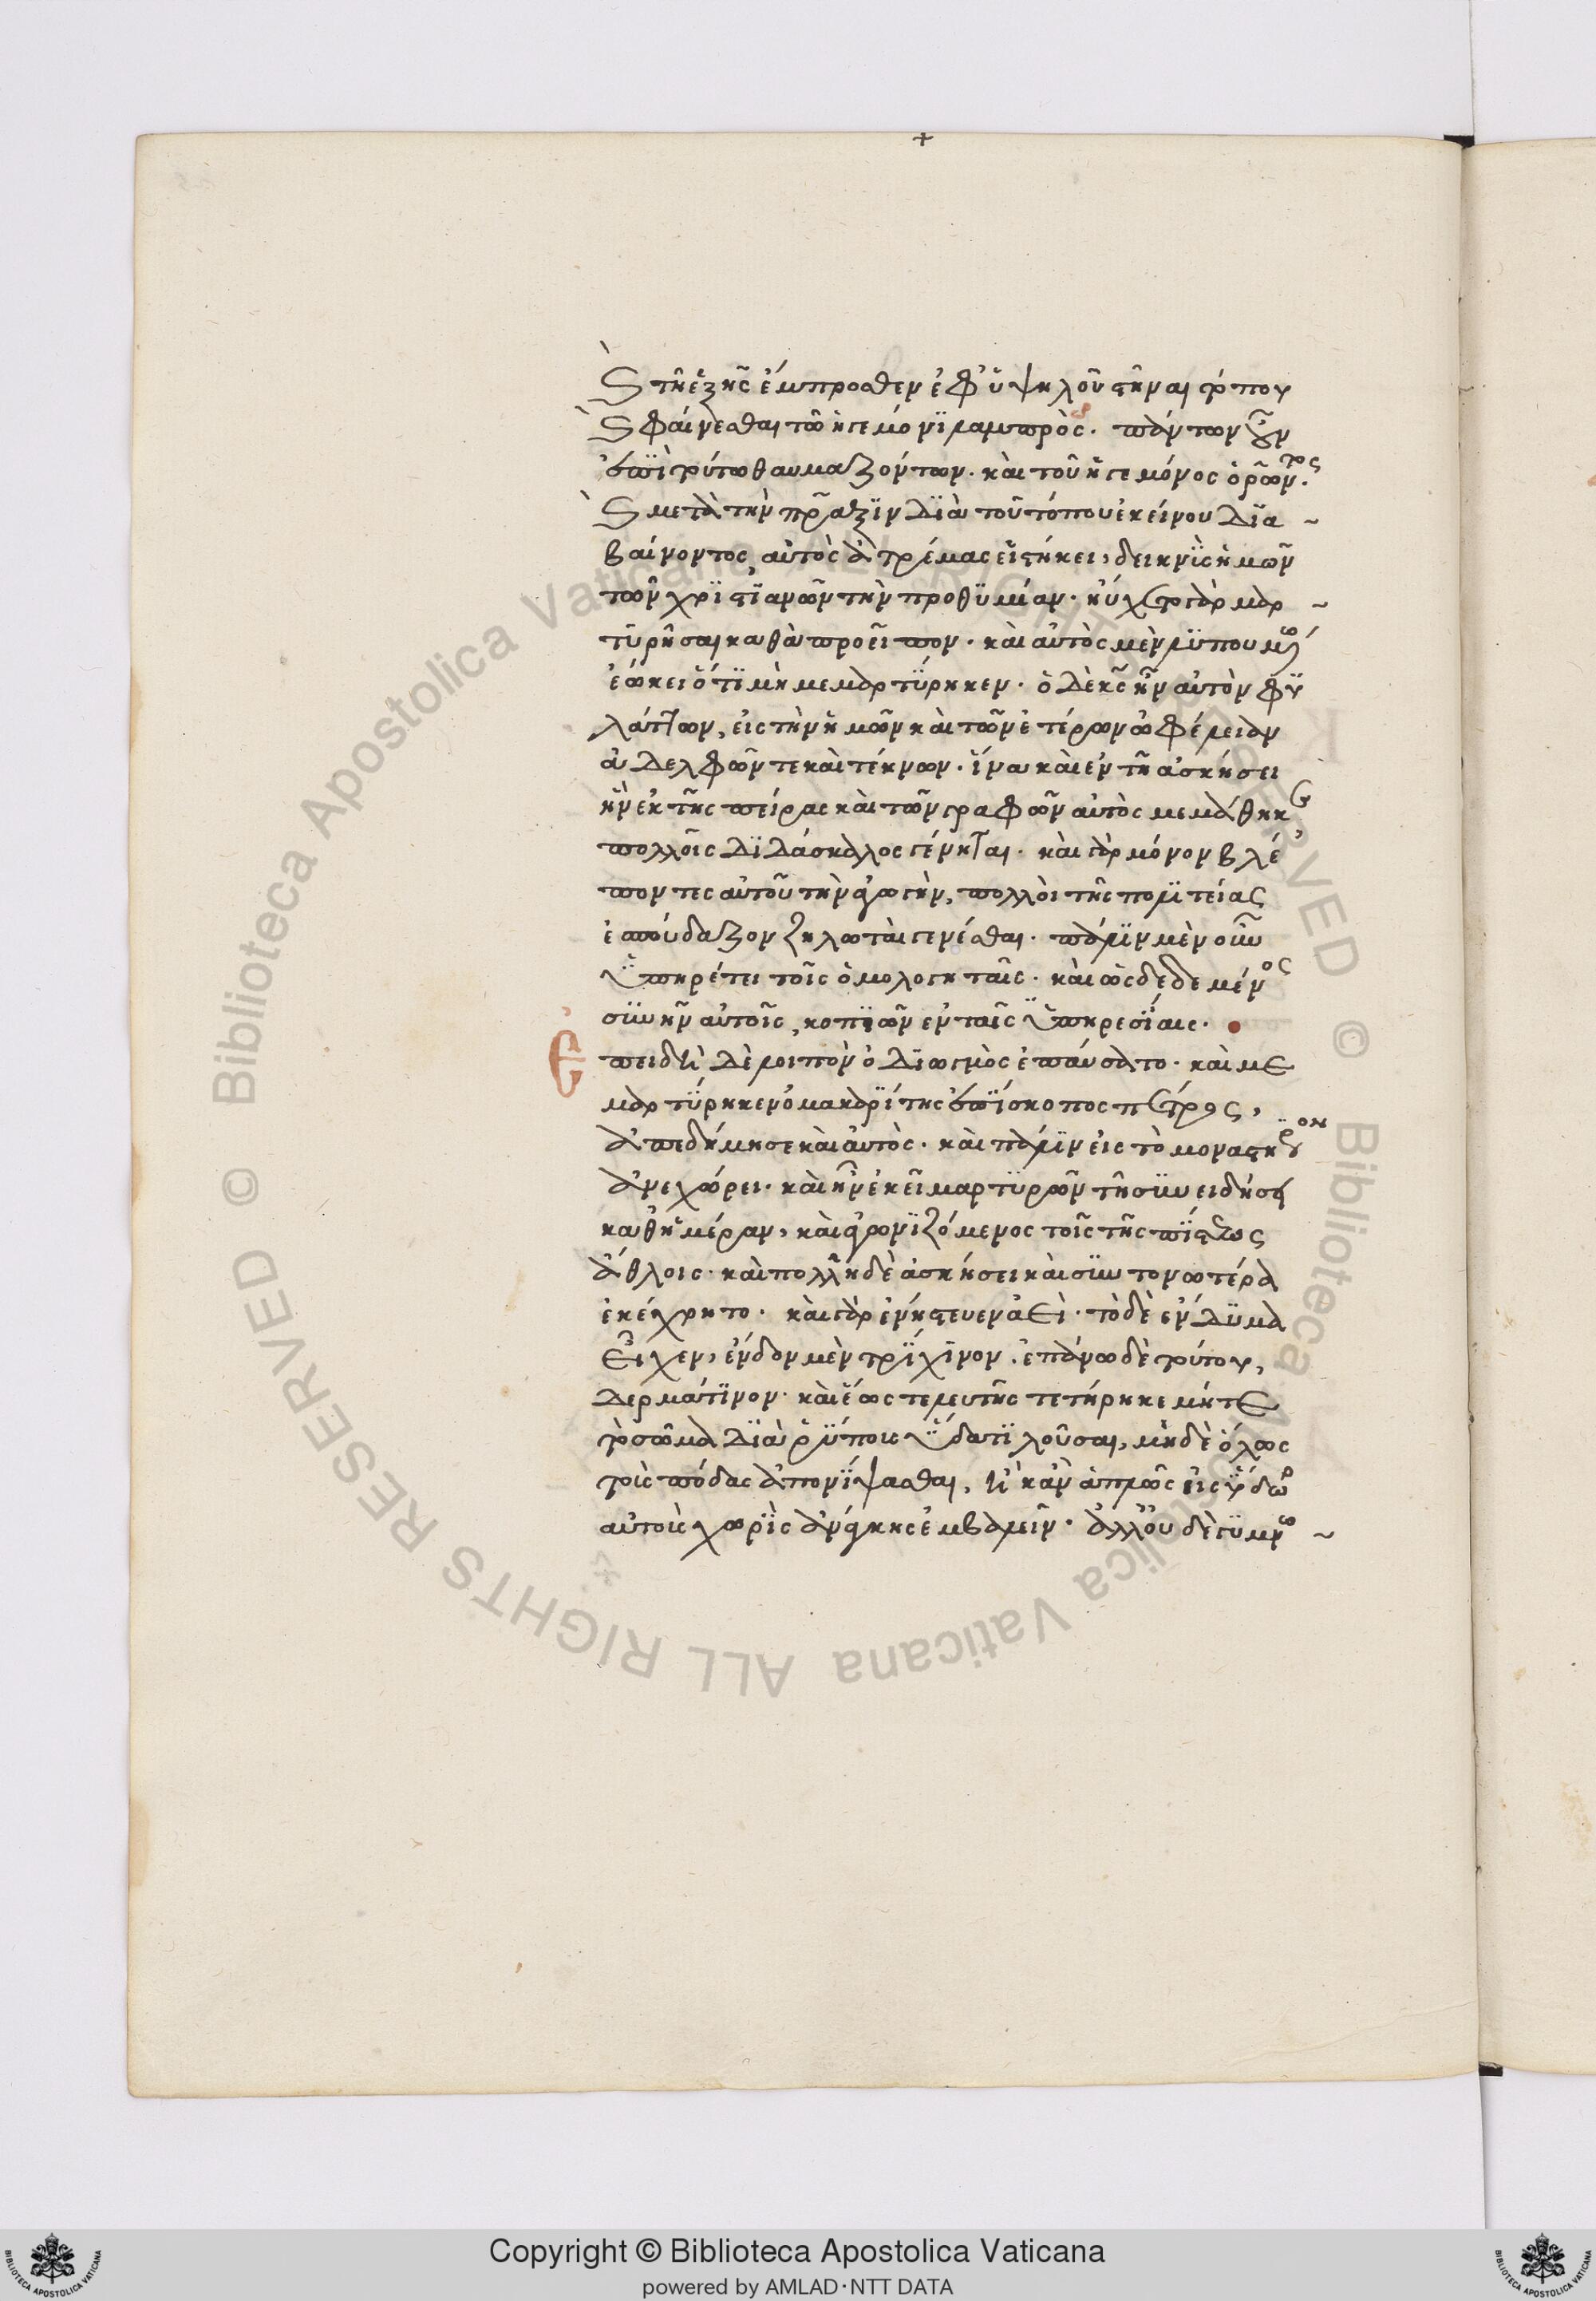 Ϛ τῆ ἑξῆς ἔμπροσθεν ἐφ' ὑψηλοῦ στῆναι τόπου
Ϛ φαίνεσθαι τῶ ἡγεμόνι λαμπρὸς. πάντων οὖν
ἐπὶ τούτω θαυμαζόντων. καὶ τοῦ ἡγεμόνος ὁρῶντος.
Ϛ μετὰ τὴν πρᾶξιν διὰ τοῦ τόπου ἐκείνου δια ~
βαίνοντος, αὐτὸς ἀτρέμας εἱστήκει, δεικνὺς ἡμῶν
τῶν χριστιανῶν τὴν προθυμίαν. ηὔχετο γὰρ μαρ ~
τυρῆσαι καθὰ προεῖπον. καὶ αὐτὸς μὲν λυπουμένω
ἐώκει ὅτι μὴ μεμαρτύρηκεν. ὁ δὲ κς ἦν αὐτὸν φυ
λάττων, εἰς τὴν ἡμῶν καὶ τῶν ἑτέρων ὠφέλειαν
ἀδελφῶν τε καὶ τέκνων. ἵνα καὶ ἐν τῆ ἀσκήσει
ἣν ἐκ τῆς πείρας καὶ τῶν γραφῶν αὐτὸς μεμάθηκε
πολλοῖς διδάσκαλος γένηται. καὶ γὰρ μόνον βλέ
ποντες αὐτοῦ τὴν ἀγωγὴν, πολλοὶ τῆς πολιτείας
ἐσπούδαζον ζηλωταὶ γενέσθαι. πάλιν μὲν οὖν
ὑπηρέτει τοῖς ὁμολογηταῖς. καὶ ὡς δεδεμένος
συνῆν αὐτοῖς, κοπιῶν ἐν ταῖς ὑπηρεσίαις.
Ἐπειδὴ δὲ λοιπὸν ὁ διωγμὸς ἐπαύσατο. καὶ με
μαρτύρηκεν ὁ μακαρίτης ἐπίσκοπος πέτρος,
ἀπεδήμησε καὶ αὐτὸς. καὶ πάλιν εἰς τὸ μοναστήριον
ἀνεχώρει. καὶ ἦν ἐκεῖ μαρτυρῶν τῆ συνειδήσει
καθ' ἡμέραν, καὶ ἀγωνιζόμενος τοῖς τῆς πίστεως
ἄθλοις. καὶ πολλῆ δὲ ἀσκήσει καὶ συντονωτέρα
ἐκέχρητο. καὶ γὰρ ἐνήστευεν ἀεὶ. τὸ δὲ ἔνδυμα
εἶχεν, ἔνδον μὲν τρίχινον. ἐπάνω δὲ τούτου,
δερμάτινον. καὶ ἕως τελευτῆς τετήρηκε μήτε
τὸ σῶμα διὰ ῥύπους ὕδατι λοῦσαι, μηδὲ ὅλως
τοὺς πόδας ἀπονίψασθαι, ἢ κἂν ἁπλῶς εἰς ὕδωρ
αὐτοὺς χωρὶς ἀνάγκης ἐμβαλεῖν. ἀλλ' οὐδὲ γυμνω ~
Copyright © Biblioteca Apostolica Vaticana
powered by AMLAD·NTT DATA